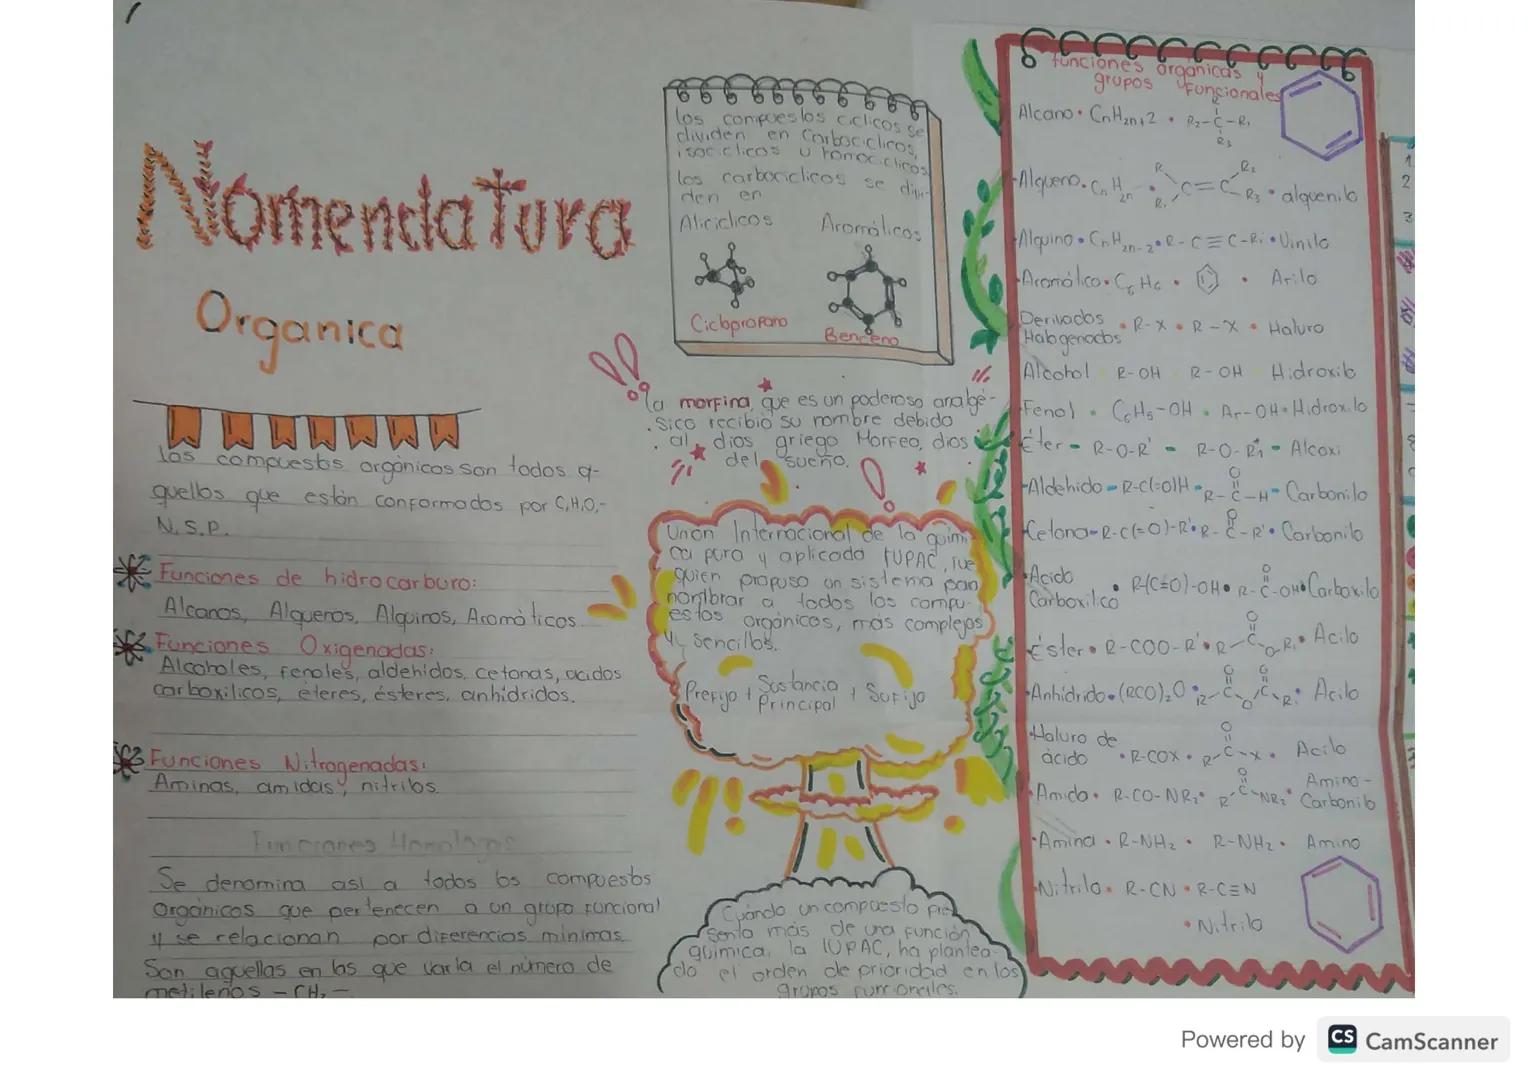 Nomenclatura
Organica
los compuestos orgánicos son todos a-
quellos que están conformados por C,H,O,-
N, S, P.
Funciones de hidrocarburo:
Alcanos, Alquenos, Alquinos, Aromáticos
Funciones Oxigenadas:
Alcoholes, fenoles, aldehidos, cetonas, acidos
carboxilicos, éteres, ésteres, anhídridos.
Funciones Nitrogenadas:
Aminas, amidas, nitrilos.
Funciones Homologas
Se denomina asi a todos los compuestos
Orgánicos que pertenecen a un grupo funcional
y se relacionan por diferencias minimas.
Son aquellas en las que varia el número de
metilenos - CH2 -
los compuestos ciclicos se
dividen en Carbociclicos,
isociclicos u homociclicos
los carbociclicos se divi-
den en
Aliciclicos Aromáticos
Ciclopropano
Benceno
la morfina, que es un poderoso analgé-
sico recibio su nombre debido
al dios griego Morfeo, dios
del sueño.
Union Internacional de la quimi
ca pura y aplicada IUPAC, fue
quien propuso un sistema para
nombrar a todos los compu-
estos orgánicos, más complejos
y sencillos.
Prefijo + Sustancia Principal + Sufijo
Cuándo un compuesto pre
senta más de una función
quimica, la IUPAC, ha plantea-
do el orden de prioridad en los
grupos funcionales.
funciones organicas y
grupos funcionales
Alcano • CnH2n+2 • R2-C-R1
R3
Alqueno • CnH2n • R R1 C=C R2 R3 • alquenilo
Alquino • CnH2n-2 • R-C≡C-R1 • Vinilo
Aromático • C6H6 • • Arilo
Derivados
Halogenados • R-X • R-X • Haluro
Alcohol R-OH R-OH Hidroxilo
Fenol • C6H5-OH • Ar-OH • Hidroxilo
Éter - R-O-R' - R-O-R1 - Alcoxi
Aldehido - R-C(=O)H - R-C-H - Carbonilo
O
Cetona - R-C(=O)-R' • R-C-R' • Carbonilo
O
Acido
Carboxilico • R(C=O)-OH • R-C-OH • Carboxilo
O
Éster • R-COO-R' • R-C-O-R1 • Acilo
O
Anhídrido • (RCO)2O • R-C-O-C-R1 • Acilo
O O
Haluro de
ácido • R-COX • R-C-X • Acilo
O
Amida • R-CO-NR2 • R-C-NR2 • Amino-
Carbonilo
O
Amina • R-NH2 • R-NH2 • Amino
Nitrilo • R-CN • R-C≡N
• Nitrilo
1
2
3
Powered by CS CamScanner